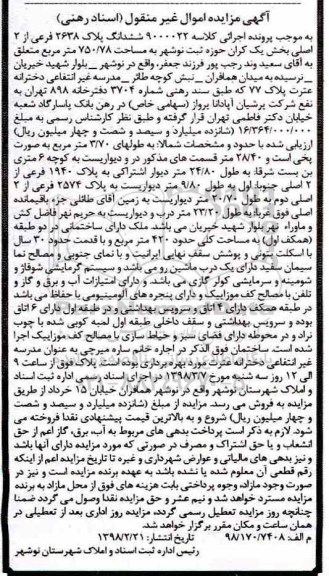 آگهی مزایده اموال غیر منقول (اسناد رهنی)
به موجب پرونده اجرائی کلاسه ۹۰۰۰۰۲۲ ششدانگ پلاک ۲۶۳۸ فرعی از ۲
اصلی بخش یک کران حوزه ثبت نوشهر به مساحت ۷۵۰/۷۸ متر مربع متعلق
به آقای سعید وند رجب پور فرزند جعفر، واقع در نوشهر _ بلوار شهید خیریان
_ نرسیده به میدان همافران _ نبش کوچه طائر _ مدرسه غیر انتفاعی دخترانه
عترت پلاک ۷۷ که طبق سند رهنی شماره ۳۷۰۴ دفترخانه ۸۹۸ تهران به
نفع شرکت پرشیان آپادانا پرواز (سهامی خاص) در رهن بانک پاسارگاد شعبه
خیابان دکتر فاطمی تهران قرار گرفته و طبق نظر کارشناس رسمی به مبلغ
۱۶/۳۶۴/۰۰۰/۰۰۰ (شانزده میلیارد و سیصد و شصت و چهار میلیون ریال)
ارزیابی شده با حدود و مشخصات شمالا: به طولهای ۳/۷۰ متر مربع به صورت
پخی است و ۲۸/۴۰ متر قسمت های مذکور در و دیواریست به کوچه ۶ متری
بن بست شرقا: به طول ۲۴/۸۰ متر دیوار اشتراکی به پلاک ۱۹۴۰ فرعی از
۲ اصلی جنوبا: اول به طول ۹/۸۰ متر دیواریست به پلاک ۲۵۷۴ فرعی از ۲
اصلی دوم به طول ۲۰/۷۰ متر دیواریست به زمین آقای طائلی جزء باقیمانده
اصلی فوق غربا: به طول ۲۳/۲۰ متر درب و دیواریست به حریم نهر فاضل کش
و ماوراء نهر بلوار شهید خیریان می باشد. ملک دارای ساختمانی در دو طبقه
(همکف اول) به مساحت کلی حدود ۴۲۰ متر مربع و با قدمت حدود ۳۰ سال
با اسکلت بتونی و پوشش سقف نهایی ایرانیت و با نمای جنوبی و مصالح نما
سیمان سفید دارای یک درب ماشین رو می باشد و سیستم گرمایشی شوفاژ و
شومینه و سرمایشی کولر گازی می باشد. و دارای امتیازات آب و برق و گاز و
تلفن با مصالح کف موزاییک و دارای پنجره های آلومینیومی با حفاظ می باشد
در طبقه همکف دارای ۴ اتاق و سرویس بهداشتی و در طبقه اول دارای ۶ اتاق
بوده و سرویس بهداشتی و سقف داخلی طبقه اول لمبه کوبی شده با چوب
نراد و در محوطه دارای فضای سبز و حیاط سازی با مصالح کف موزاییک اجرا
شده است. ساختمان فوق الذکر در اجاره خانم ساره میرچی به عنوان مدرسه
غیر انتفاعی دخترانه عترت مورد بهره برداری بوده است. پلاک فوق از ساعت ۹
الی ۱۲ روز سه شنبه مورخ ۱۳۹۸/۳/۷ در اجرای اسناد رسمی اداره ثبت اسناد
و املاک شهرستان نوشهر واقع در نوشهر همافران خیابان ۱۵ خرداد از طریق
مزایده به فروش می رسد. مزایده از مبلغ (شانزده میلیارد و سیصد و شصت
و چهار میلیون ریال) شروع و به بالاترین قیمت پیشنهادی نقدا فروخته می
شود. لازم به ذکر است پرداخت بدهی های مربوط به آب، برق، گاز اعم از حق
انشعاب و یا حق اشتراک و مصرف در صورتی که مورد مزایده دارای آنها باشد
و نیز بدهی های مالیاتی و عوارض شهرداری و غیره تا تاریخ مزایده اعم از اینکه
رقم قطعی آن معلوم شده یا نشده باشد به عهده برنده مزایده است و نیز در
صورت وجود مازاد، وجوه پرداختی بابت هزینه های فوق از محل مازاد به برنده
مزایده مسترد خواهد شد و نیم عشر و حق مزایده نقدا وصول می گردد ضمنا
چنانچه روز مزایده تعطیل رسمی گردد، مزایده روز اداری بعد از تعطیلی در
همان ساعت و مکان مقرر برگزار خواهد شد.
م الف: ۹۸/۱۷۰/۷۴۰۸ تاریخ انتشار: ۱۳۹۸/۲/۲۱
رئیس اداره ثبت اسناد و املاک شهرستان نوشهر